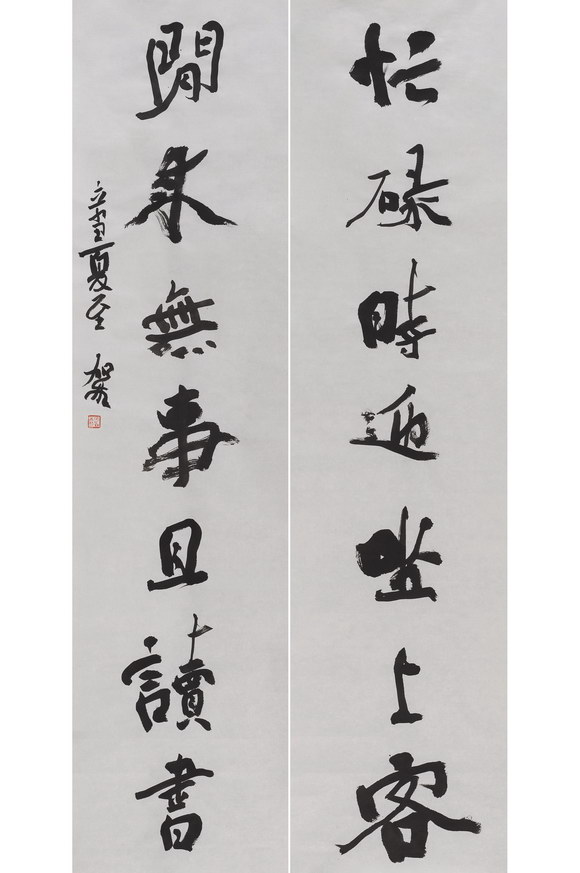 忙碌時迎坐上客
閒来無事且讀書
夏至